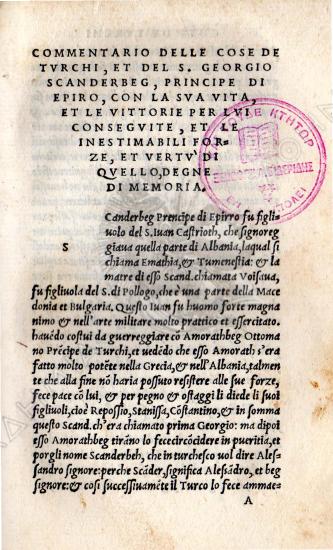 COMMENTARIO DELLE COSE DE
TVRCHI, ET DEL S. GEORGIO
SCANDERBEG, PRINCIPE DI
EPIRO, CON LA SVA VITA,
ET LE VITTORIE PER LVI
CONSEGVITE, ET LE
INESTIMABILI FOR-
ZE, ET VERTV' DI
QVELLO, DEGNE
DI MEMORIA.
S
Canderbeg Prencipe di Epirro fu figli
uolo del S. Iuan Castrioth, che signoreg
giaua quella parte di Albania, laqual si
chiama Emathia, & Tumenestia: & la
matre di esso Scand. chiamata Voisaua,
fu figliuola del S. di Pollogo, che è una parte della Mace
donia et Bulgaria. Questo Iuan fu huomo forte magna
nimo & nell'arte militare molto pratico et essercitato.
hauēdo costui da guerreggiare cō Amorathbeg Ottoma
no Prēcipe de Turchi, et uedēdo che esso Amorath s'era
fatto molto potēte nella Grecia, & nell'Albania, talmen
te che alla fine nō haria possuto resistere alle sue forze,
fece pace cō lui, & per pegno & ostaggi li diede li suoi
figliuoli, cioè Reposſio, Stanissa, Cōstantino, & in somma
questo Scand. ch'era chiamato prima Georgio: ma dipoi
esso Amorathbeg tirāno lo fece circōcidere in pueritia, et
porgli nome Scanderbeh, che in turchesco uol dire Ales-
sandro signore: perche Scāder, significa Alesādro, et beg
signore: & cosi successiuamēte il Turco lo fece ammae-
A